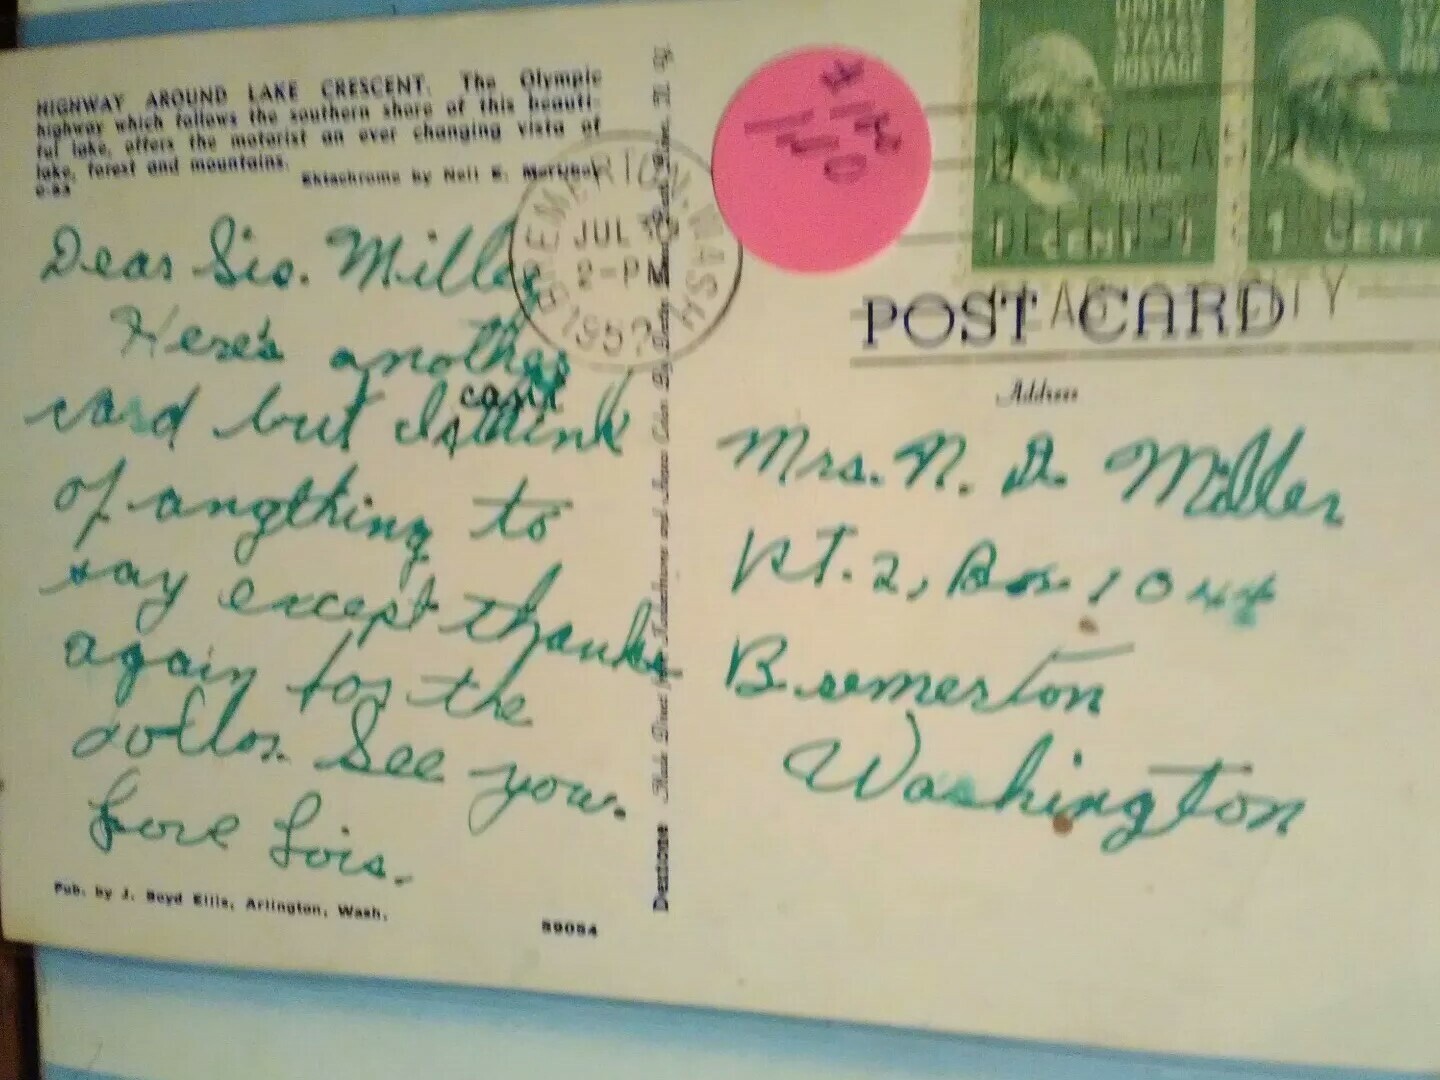 HIGHWAY AROUND LAKE CRESCENT. The Olympic
highway which follows the southern shore of this beauti-
ful lake, offers the motorist an ever changing vista of
lake, forest and mountains.
Ektachrome by Neil E.
Dear Sis. Miller
Here's another
card but I can't think
of anything to
say except thanks
again for the
dollar. See you.
Love Lois.
Pub. by J. Boyd Ellis, Arlington, Wash.
59054
Dextone
BREMERTON, WASH
JUL
2-PM
1957
UNITED
STATES
POSTAGE
1 CENT 1
1 CENT
POST CARD
Address
Mrs. N. D. Miller
Rt. 2, Box 1044
Bremerton
Washington